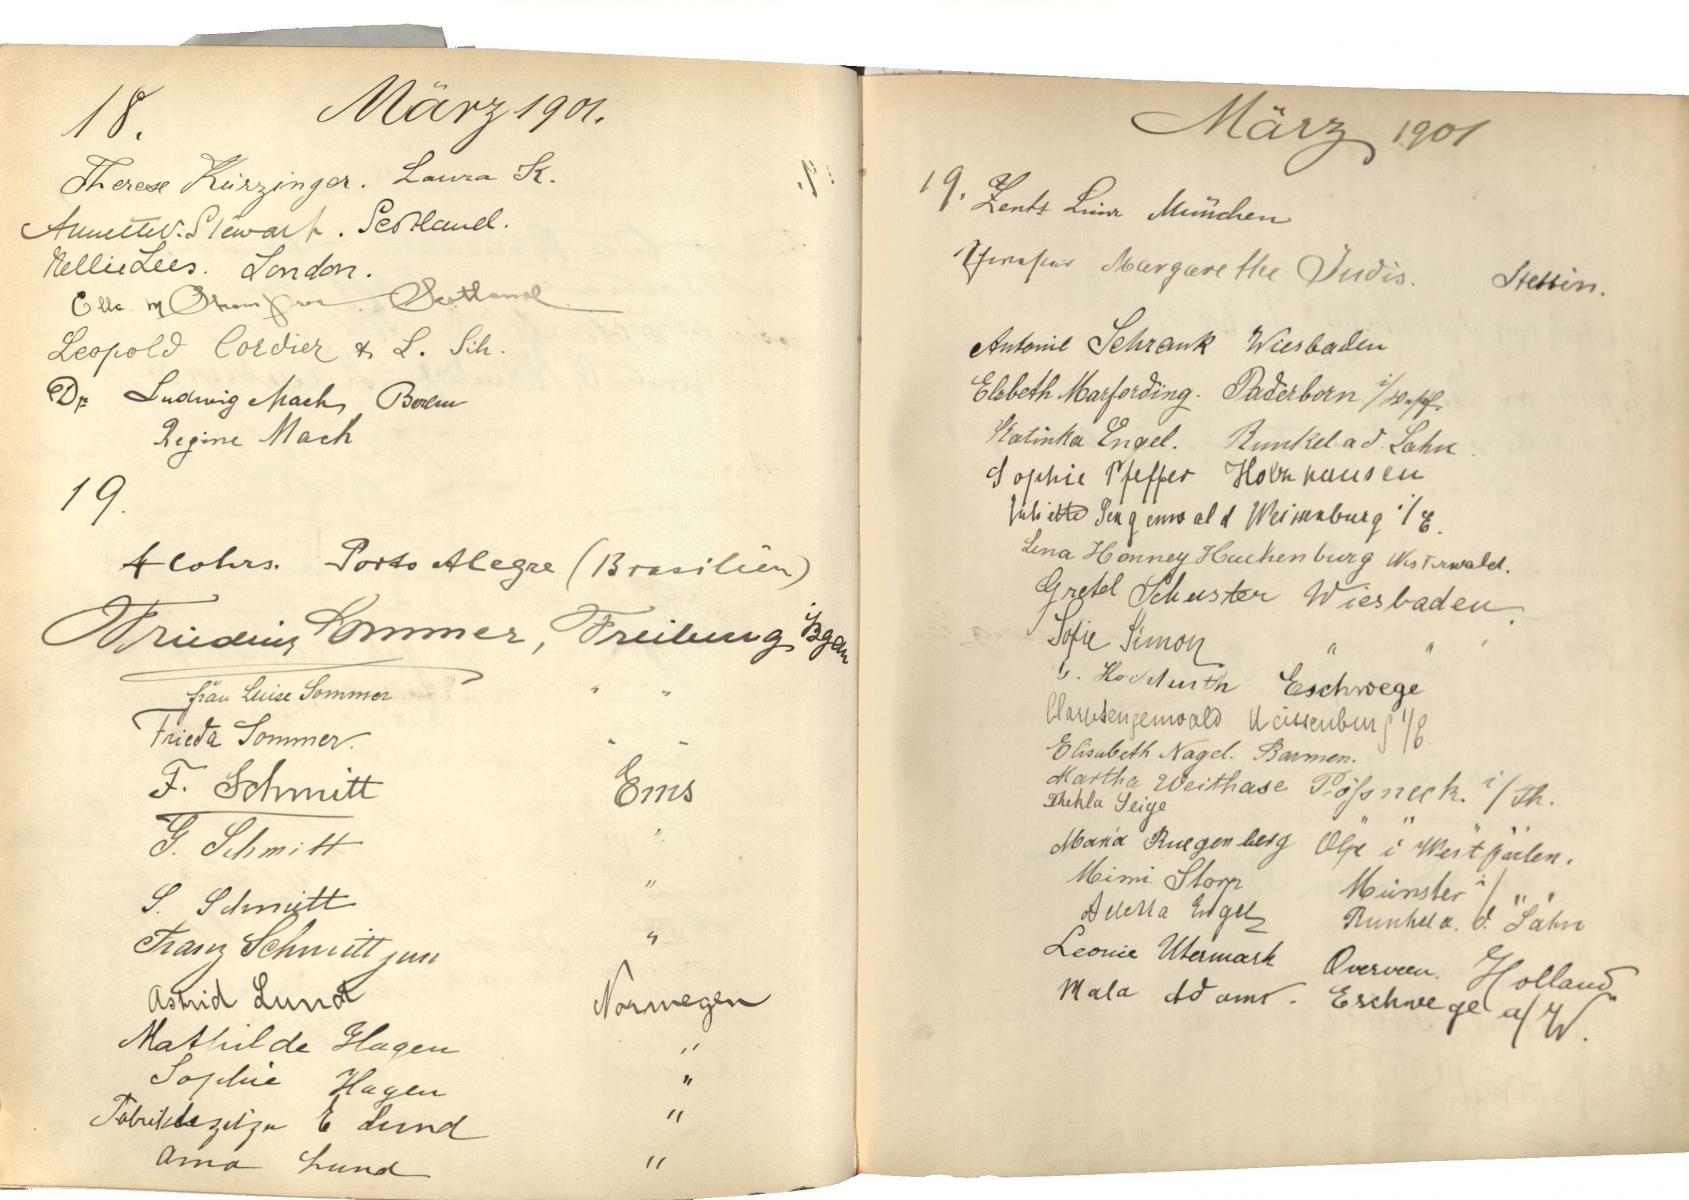 18. März 1901.
Therese Kürzinger. Laura K.
Annette V. Stewart. Scotland.
Nellie Lees. London.
Ella M Scotland
Leopold Cordier & L. Sch.
Dr Ludwig Mach,
Regine Mach
19.
Porto Alegre (Brasilien)
Sommer, Freiburg
frau Luise Sommer " "
Frieda Sommer. " "
F. Schmitt Ems
G. Schmitt "
S. Schmitt "
Franz Schmitt jun "
Astrid Lund Norwegen
Mathilde Hagen "
Sophie Hagen "
E Lund "
Anna Lund "
März 1901
19. München
Margarethe Judis. Stettin.
Antonie Schrank Wiesbaden
Elsbeth Marfording. Paderborn
Katinka Engel. Runkel a d. Lahn.
Sophie Pfeffer Holzhausen
Sengenwald Weissenburg i/E.
Lena Honney Hachenburg Westerwald.
Gretel Schuster Wiesbaden.
Sofie Simon " "
Eschwege
Sengenwald Weissenburg i/E
Elisabeth Nagel. Barmen.
Martha Weithase Pößneck. i/Th.
Thekla Seige
Maria Ruegenberg Olpe i Westfalen.
Mimi Storp Münster i/ " "
Engel Runkel a. d. Lahn
Leonie Utermark Overveen. Holland
Mala Adams. Eschwege a/W.